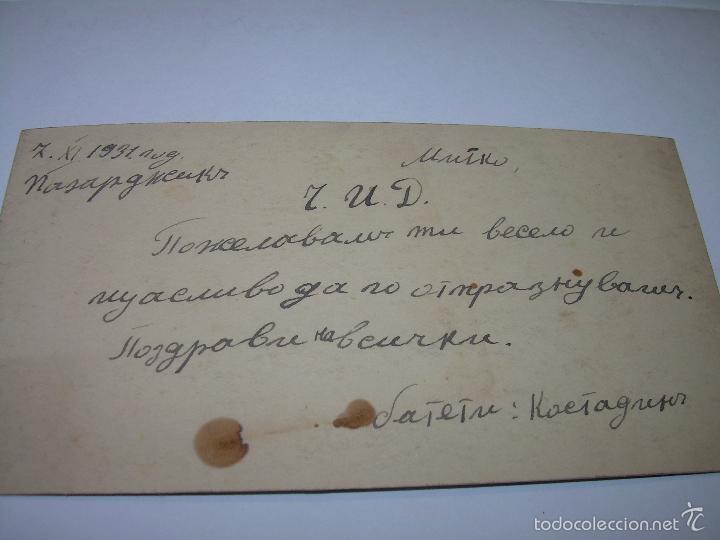 7. XI 1931 год.
Пазарджикъ
Митко,
Ч. И. Д.
Пожелавамъ ти весело и
щасливо да го отпразнувашъ.
Поздрави на всички.
батети: Костадинъ
todocoleccion.net